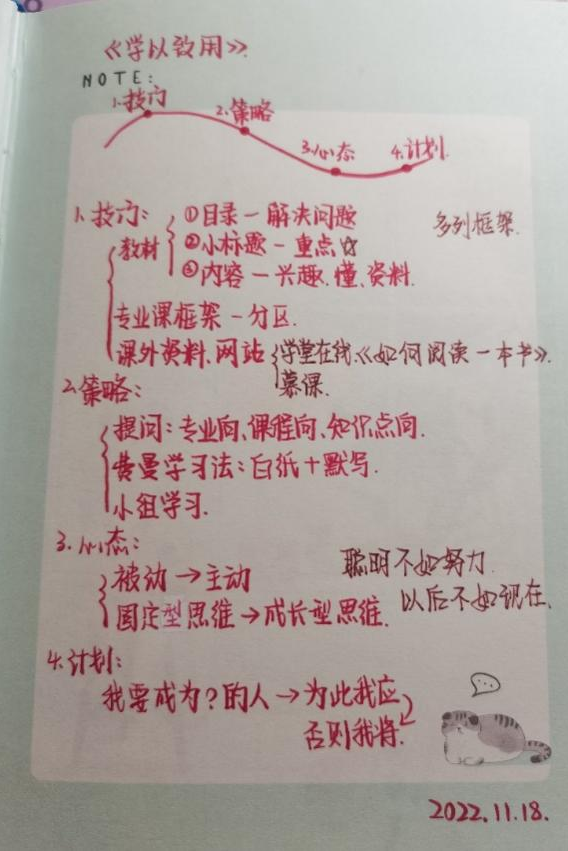 《学以致用》
NOTE:
1.技门 2.策略 3.心态 4.计划.
1.技门: ①目录一解决问题 多列框架.
教材 ②小标题一重点☆
③内容一兴趣.懂.资料.
专业课框架一分区.
课外资料.网站 学堂在线.《如何阅读一本书》.
慕课.
2.策略:
提问:专业向、课程向、知识点向.
费曼学习法:白纸+默写.
小组学习.
3.心态: 聪明不如努力.
被动→主动 以后不如现在.
固定型思维→成长型思维.
4.计划:
我要成为?的人→为此我应
否则我将.
2022.11.18.